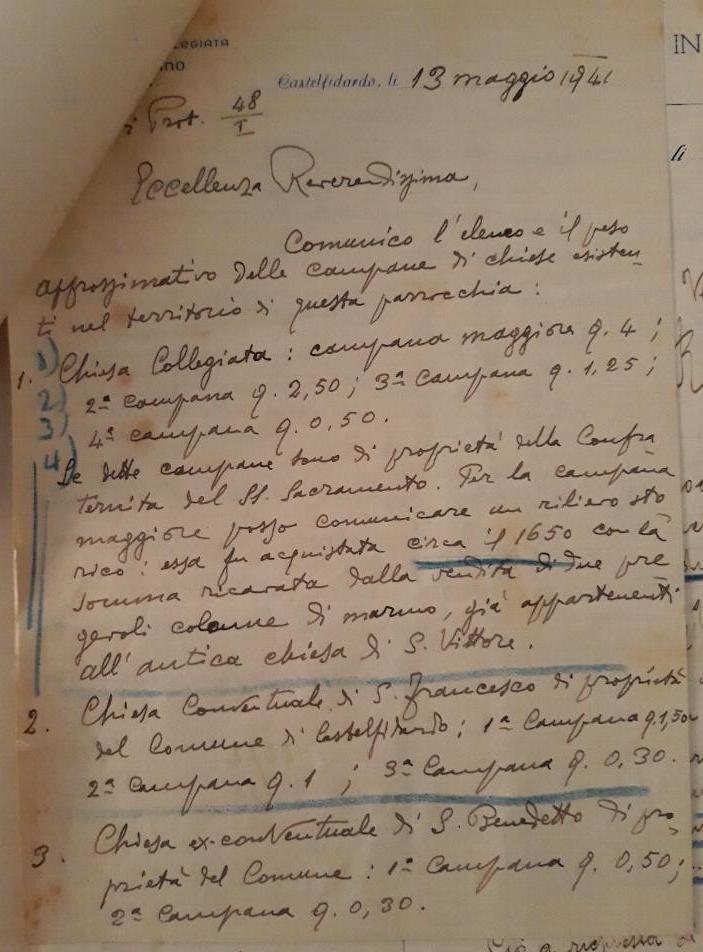 LEGIATA
INO
IN
Castelfidardo, li 13 maggio 1941
li
Prot. 48/I
Eccellenza Reverendissima,
Comunico l'elenco e il peso
approssimativo delle campane di chiese esisten-
ti nel territorio di questa parrocchia :
1)
1. Chiesa Collegiata : campana maggiore q. 4 ;
2) 2ª campana q. 2,50 ; 3ª campana q. 1,25 ;
3) 4ª campana q. 0,50.
4) Le dette campane sono di proprietà della Confra
ternita del SS. Sacramento. Per la campana
maggiore posso comunicare un rilievo sto
rico : essa fu acquistata circa il 1650 con la
somma ricavata dalla vendita di due pre
gevoli colonne di marmo, già appartenenti
all'antica chiesa di S. Vittore.
2. Chiesa Conventuale di S. Francesco di proprietà
del Comune di Castelfidardo ; 1ª Campana q. 1,50
2ª Campana q. 1 ; 3ª Campana q. 0,30.
3. Chiesa ex-conventuale di S. Benedetto di pro-
prietà del Comune : 1ª Campana q. 0,50 ;
2ª Campana q. 0,30.